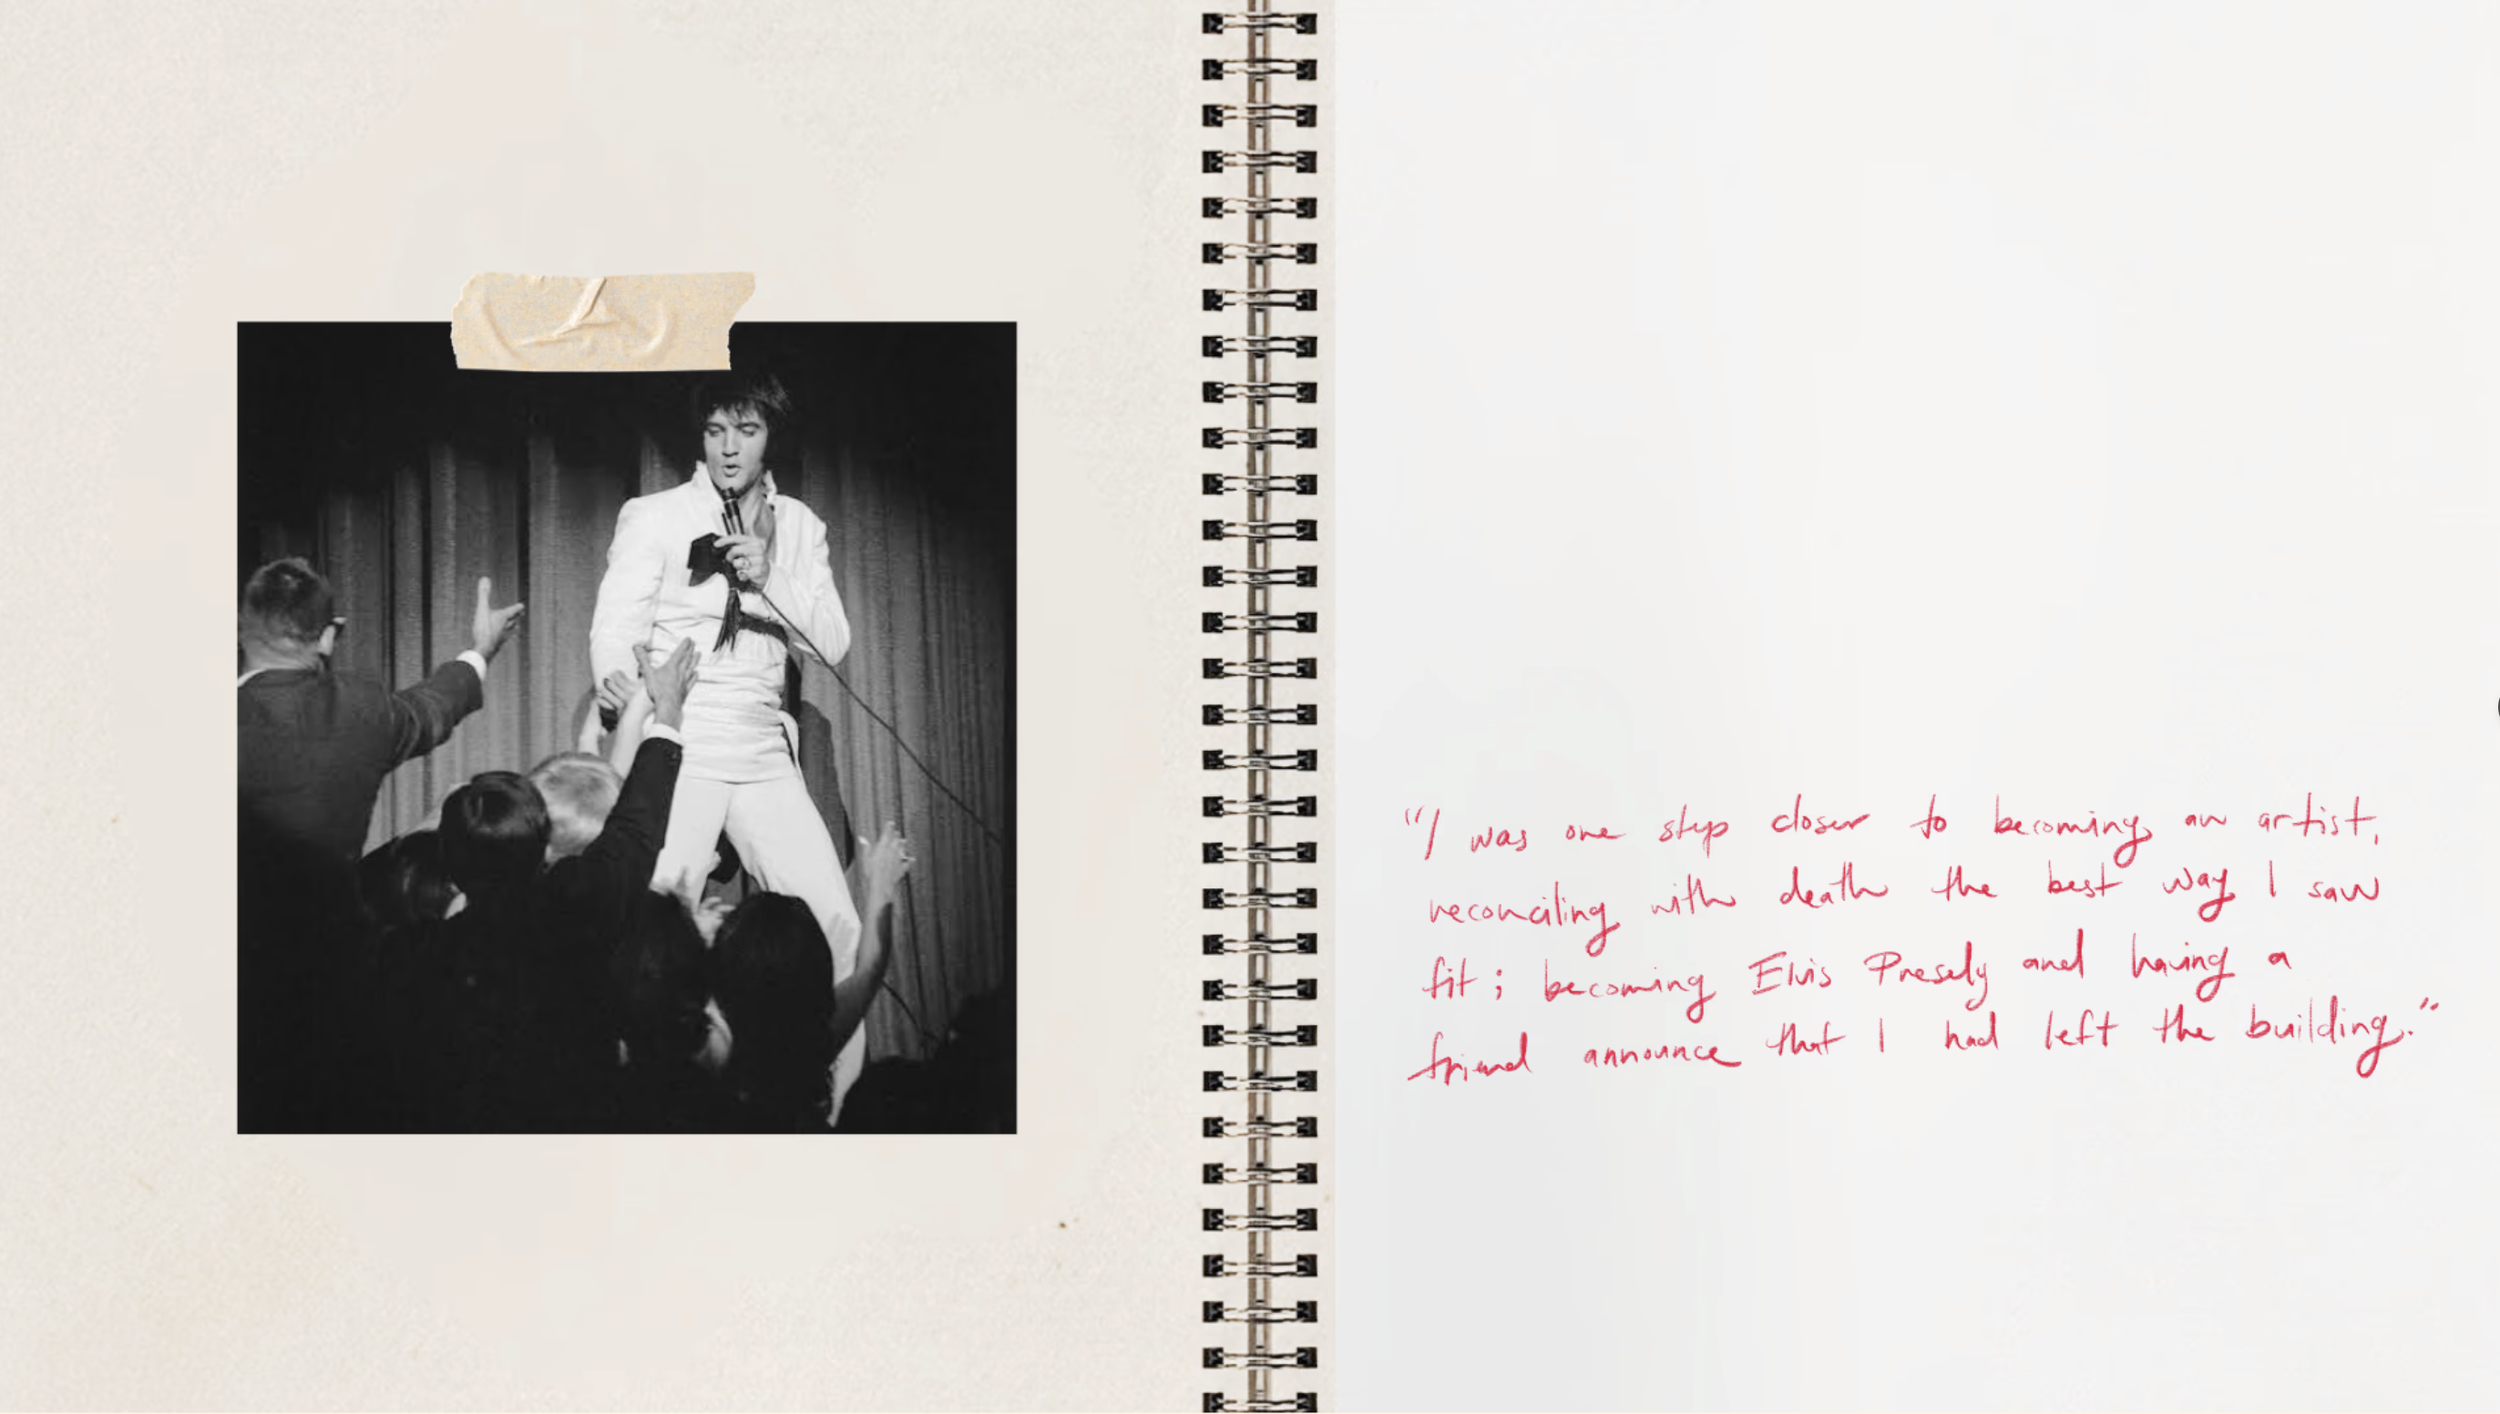 "I was one step closer to becoming an artist,
reconciling with death the best way I saw
fit; becoming Elvis Presely and having a
friend announce that I had left the building."